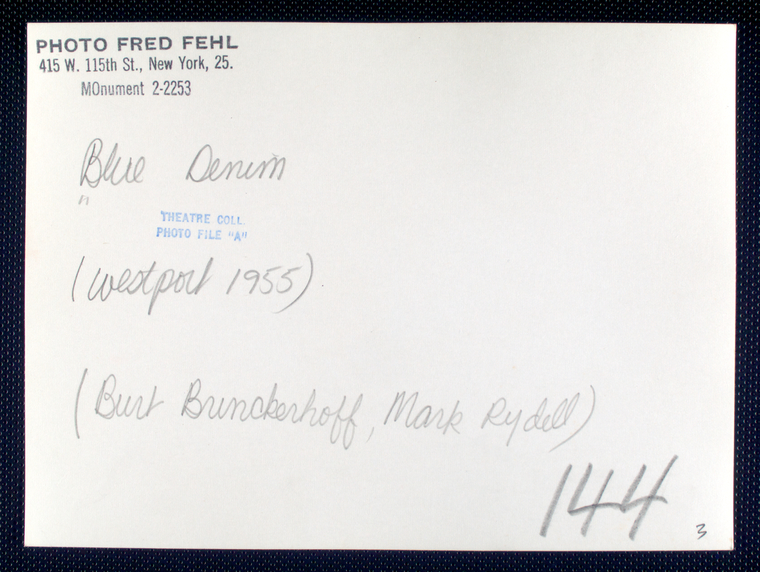 PHOTO FRED FEHL
415 W. 115th St., New York, 25.
MOnument 2-2253
Blue Denim
"
THEATRE COLL.
PHOTO FILE "A"
(Westport 1955)
(Burt Brinckerhoff, Mark Rydell)
144
3